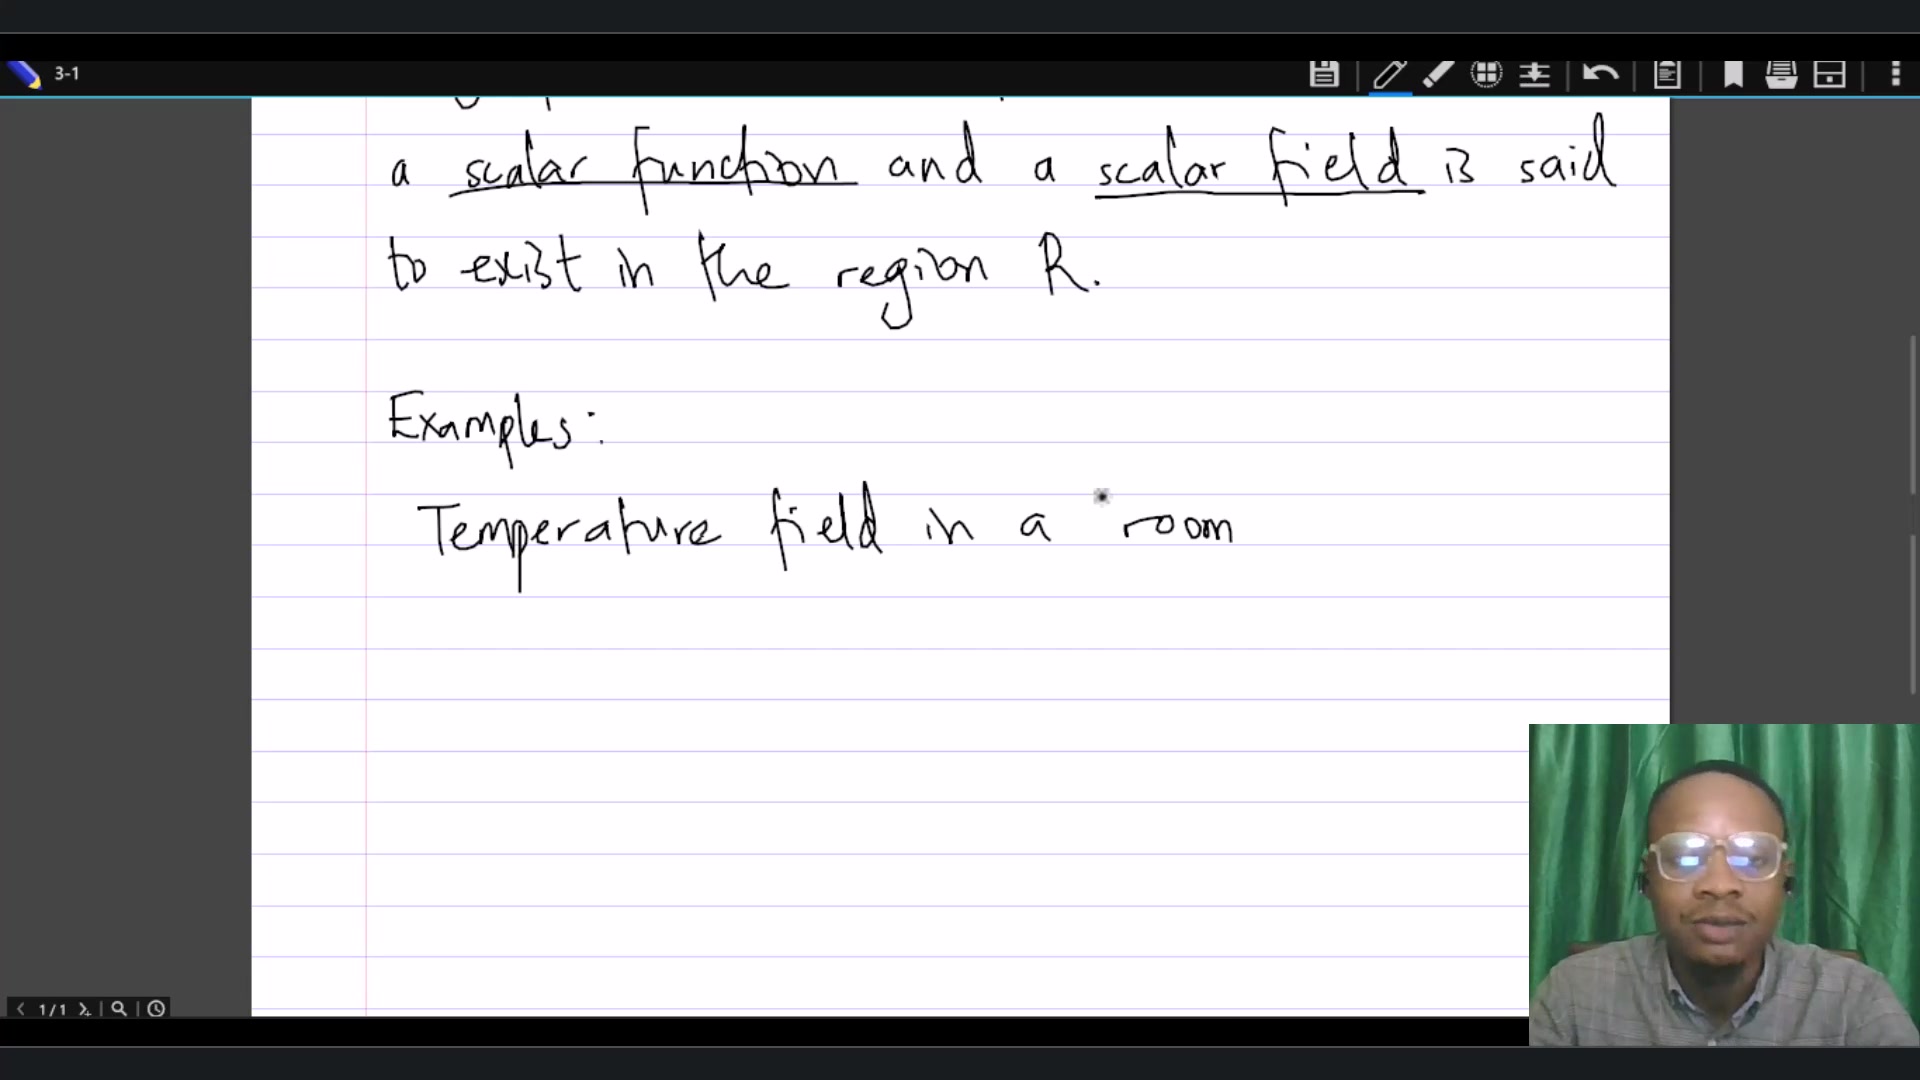 3-1
a scalar function and a scalar field is said
to exist in the region R.
Examples:
Temperature field in a room
1/1